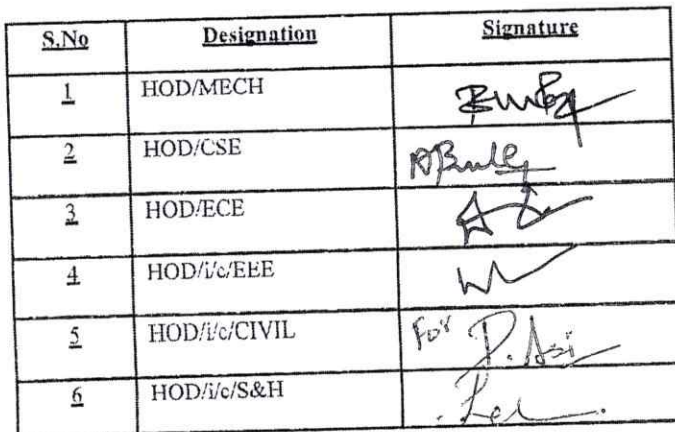 S.No Designation Signature
1 HOD/MECH
2 HOD/CSE
3 HOD/ECE
4 HOD/i/c/EEE
5 HOD/i/c/CIVIL For
6 HOD/i/c/S&H